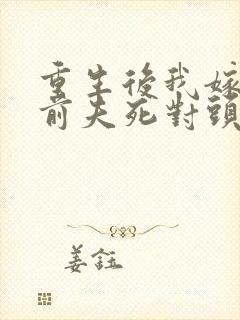 重生後我嫁
前夫死對頭
姜鈺